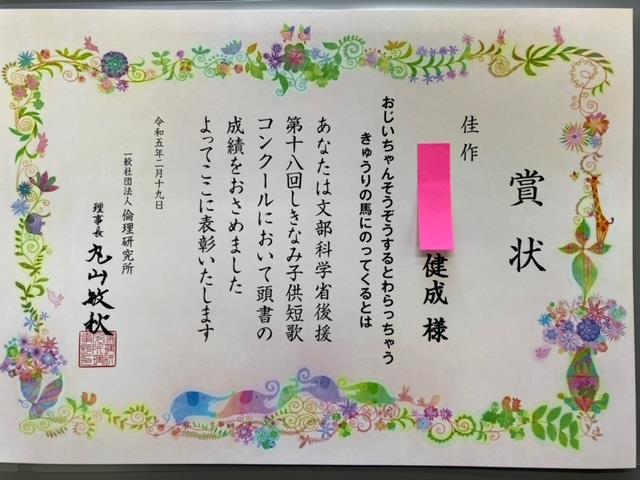 賞状
佳作
健成 様
おじいちゃんそうぞうするとわらっちゃう
きゅうりの馬にのってくるとは
あなたは文部科学省後援
第十八回しきなみ子供短歌
コンクールにおいて頭書の
成績をおさめました
よってここに表彰いたします
令和五年二月十九日
一般社団法人 倫理研究所
理事長 丸山敏秋